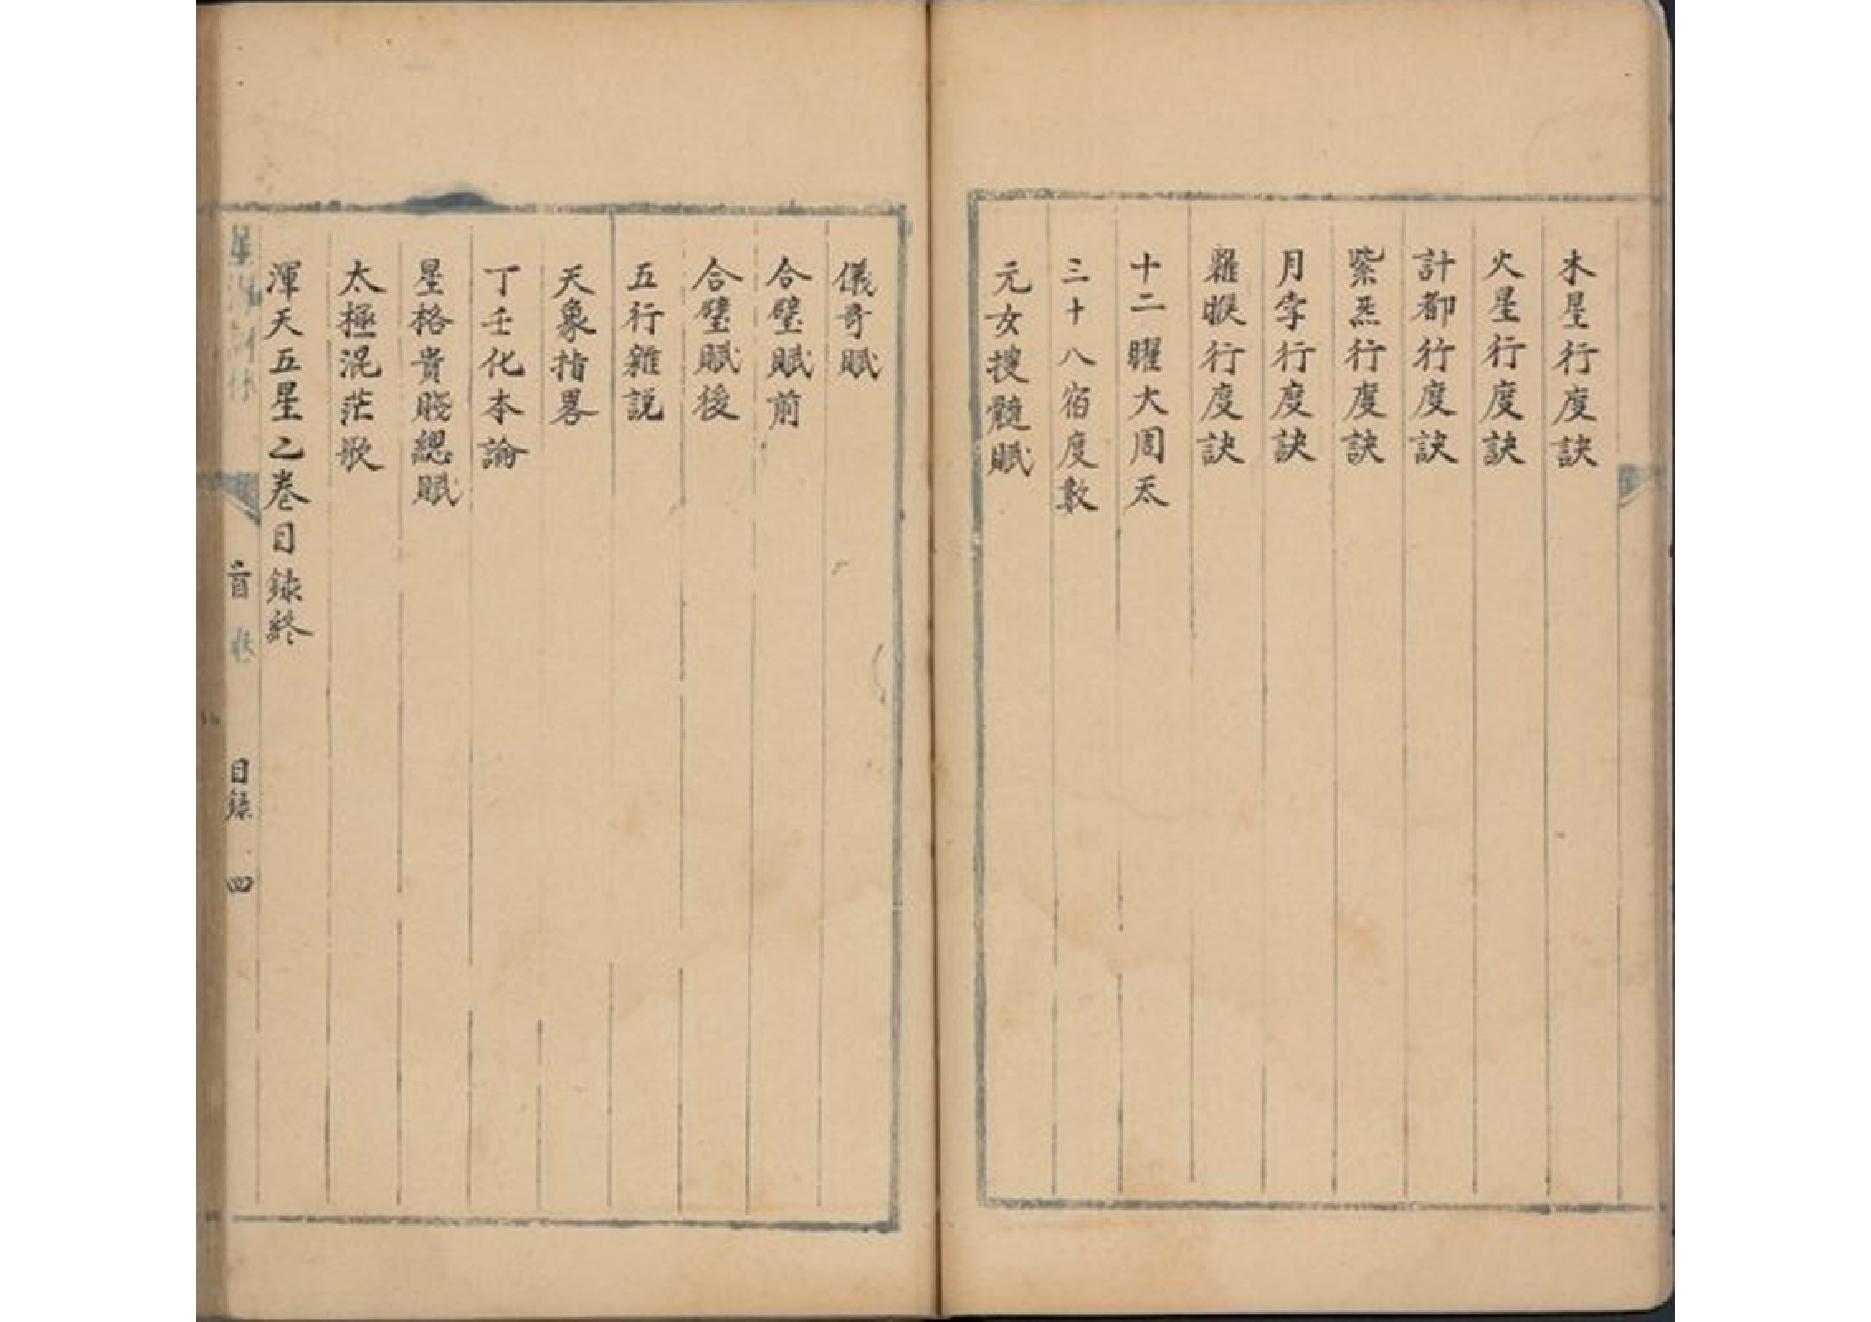 木星行度訣
火星行度訣
計都行度訣
紫炁行度訣
月孛行度訣
羅睺行度訣
十二曜大周天
三十八宿度數
元女搜髓賦
儀奇賦
合璧賦前
合璧賦後
五行雜説
天象指畧
丁壬化本論
星格貴賤總賦
太極混茫歌
渾天五星之卷目録終
首卷
目録
四